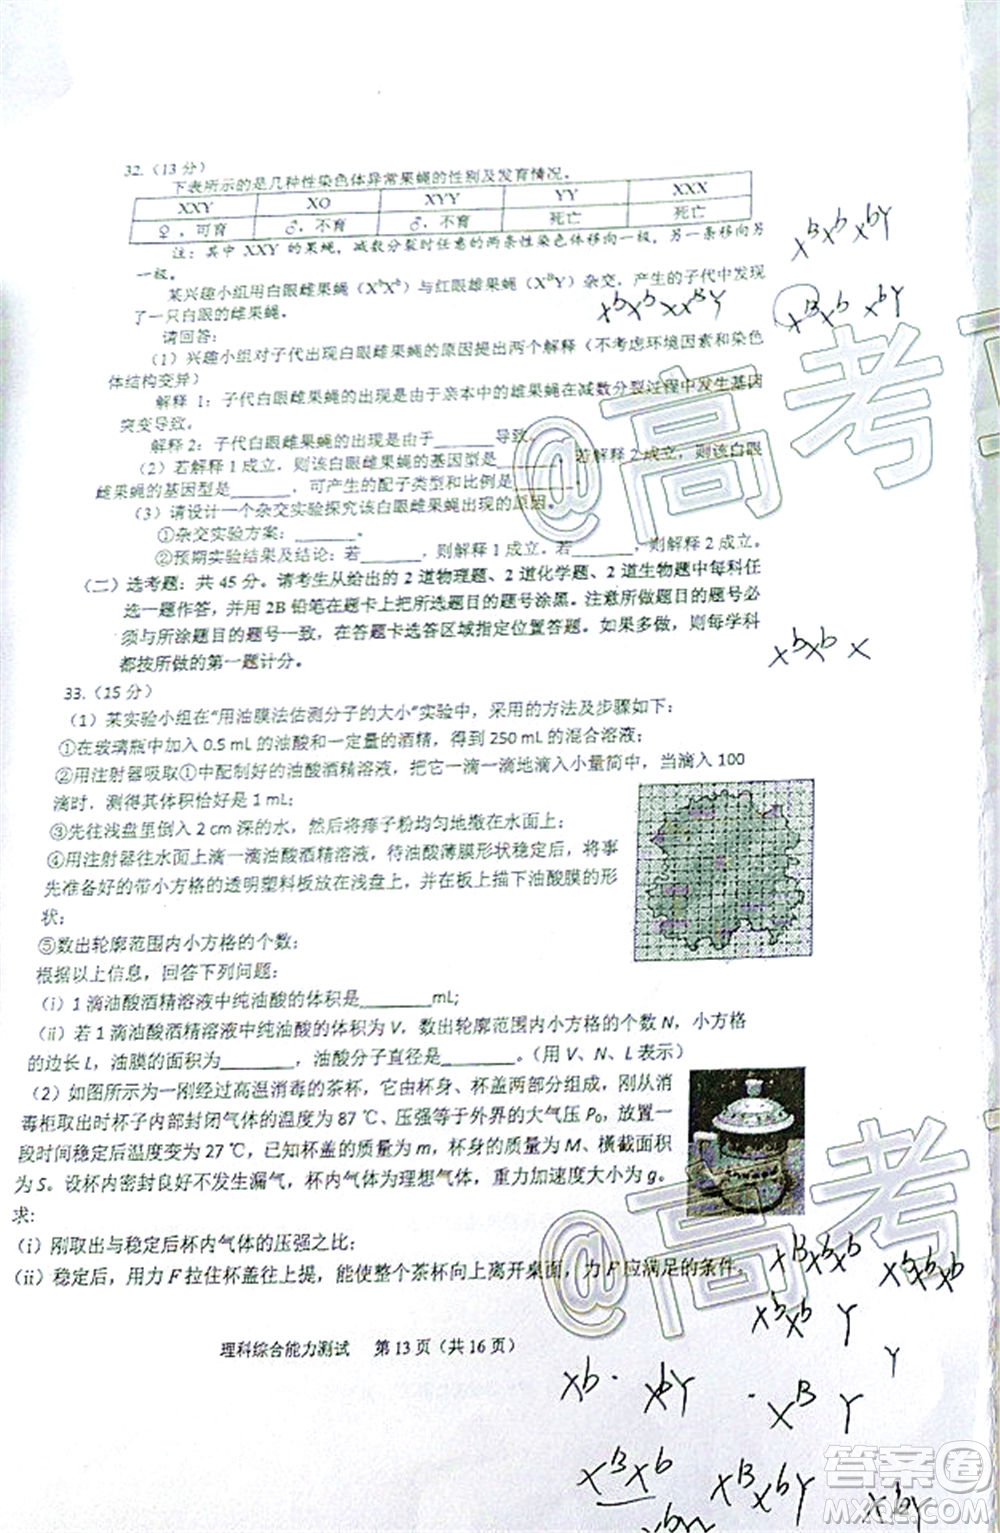 32.（13 分）
下表所示的是几种性染色体异常果蝇的性别及发育情况。
XXY XO XYY YY XXX
♀，可育 ♂，不育 ♂，不育 死亡 死亡
注：其中 XXY 的果蝇，减数分裂时任意的两条性染色体移向一极，另一条移向另
一极。
某兴趣小组用白眼雌果蝇（XᵇXᵇ）与红眼雄果蝇（XᴮY）杂交，产生的子代中发现
了一只白眼的雌果蝇。
请回答：
（1）兴趣小组对子代出现白眼雌果蝇的原因提出两个解释（不考虑环境因素和染色
体结构变异）
解释 1：子代白眼雌果蝇的出现是由于亲本中的雄果蝇在减数分裂过程中发生基因
突变导致。
解释 2：子代白眼雌果蝇的出现是由于______导致。
（2）若解释 1 成立，则该白眼雌果蝇的基因型是______，若解释 2 成立，则该白眼
雌果蝇的基因型是______，可产生的配子类型和比例是______。
（3）请设计一个杂交实验探究该白眼雌果蝇出现的原因。
①杂交实验方案：______。
②预期实验结果及结论：若______，则解释 1 成立；若______，则解释 2 成立。
（二）选考题：共 45 分。请考生从给出的 2 道物理题、2 道化学题、2 道生物题中每科任
选一题作答，并用 2B 铅笔在题卡上把所选题目的题号涂黑。注意所做题目的题号必
须与所涂题目的题号一致，在答题卡选答区域指定位置答题。如果多做，则每学科
都按所做的第一题计分。
33.（15 分）
（1）某实验小组在“用油膜法估测分子的大小”实验中，采用的方法及步骤如下：
①在玻璃瓶中加入 0.5 mL 的油酸和一定量的酒精，得到 250 mL 的混合溶液；
②用注射器吸取①中配制好的油酸酒精溶液，把它一滴一滴地滴入小量筒中，当滴入 100
滴时，测得其体积恰好是 1 mL；
③先往浅盘里倒入 2 cm 深的水，然后将痱子粉均匀地撒在水面上；
④用注射器往水面上滴一滴油酸酒精溶液，待油酸薄膜形状稳定后，将事
先准备好的带小方格的透明塑料板放在浅盘上，并在板上描下油酸膜的形
状；
⑤数出轮廓范围内小方格的个数；
根据以上信息，回答下列问题：
（i）1 滴油酸酒精溶液中纯油酸的体积是________mL；
（ii）若 1 滴油酸酒精溶液中纯油酸的体积为 V，数出轮廓范围内小方格的个数 N，小方格
的边长 L，油膜的面积为________，油酸分子直径是________。（用 V、N、L 表示）
（2）如图所示为一刚经过高温消毒的茶杯，它由杯身、杯盖两部分组成，刚从消
毒柜取出时杯子内部封闭气体的温度为 87 ℃、压强等于外界的大气压 P₀，放置一
段时间稳定后温度变为 27 ℃，已知杯盖的质量为 m，杯身的质量为 M、横截面积
为 S。设杯内密封良好不发生漏气，杯内气体为理想气体，重力加速度为 g。
求：
（i）刚取出与稳定后杯内气体的压强之比；
（ii）稳定后，用力 F 拉住杯盖往上提，能使整个茶杯向上离开桌面，力 F 应满足的条件。
理科综合能力测试 第 13 页（共 16 页）
@高考
@高考
答案圈
MXQE.COM